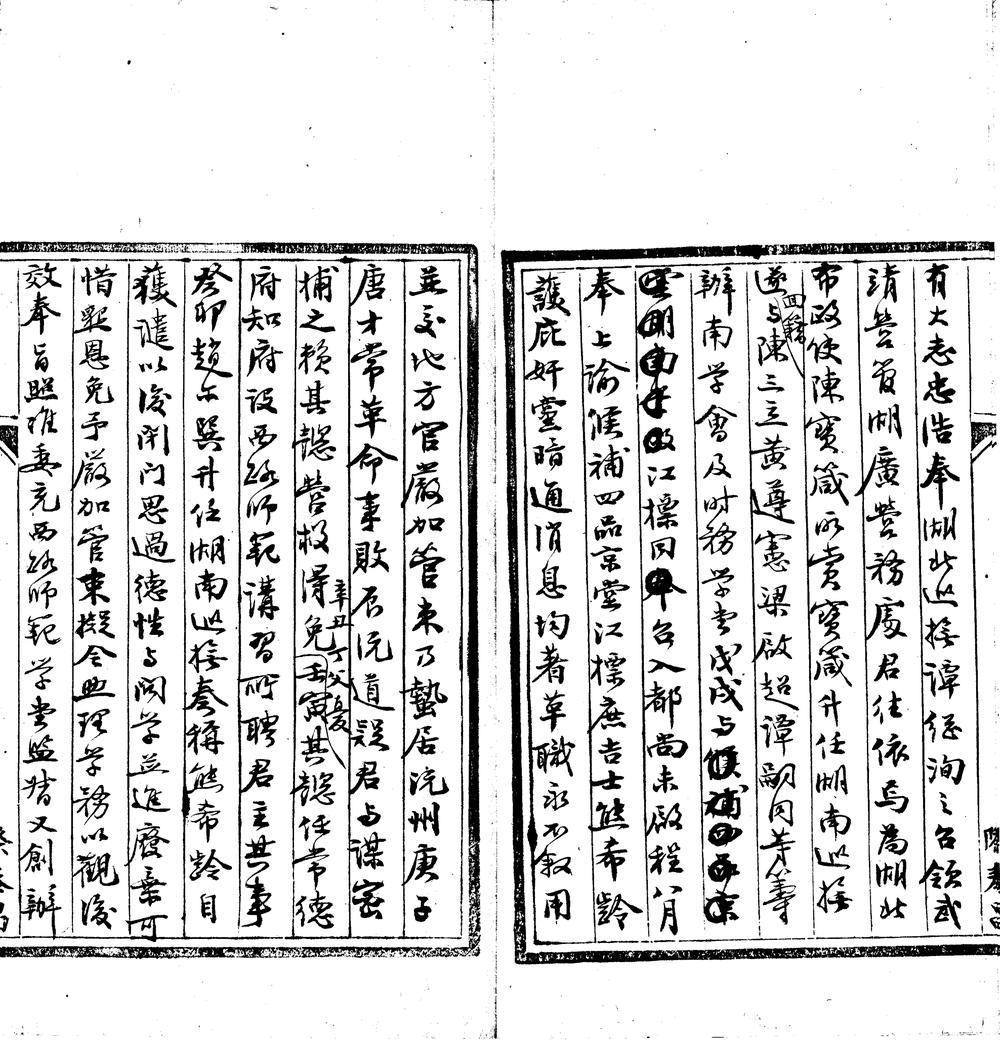 有大志忠浩奉湖北巡撫譚繼洵之召領武
靖營肎湖廣營務處君往依焉為湖北
布政使陳寶箴所賞寶箴升任湖南巡撫
遂回籍与陳三立黃遵憲梁啟超譚嗣同等籌
辦南学會及时務学堂戊戌与候補四品京
江標同召入都尚未啟程八月
奉上諭候補四品京堂江標庶吉士熊希齡
護庇奸黨暗通消息均著革職永不敘用
並交地方官嚴加管束乃蟄居沅州庚子
唐才常革命事敗辰沅道疑君与謀密
捕之賴其謊營救得免辛丑丁父憂壬寅其謊任常德
府知府設西路师範講習所聘君主其事
癸卯趙尔巽升任湖南巡撫奏稱熊希齡自
獲譴以後閉门思過德性与问学並進廢棄可
惜懇恩免予嚴加管束擬令助理学務以觀後
效奉旨照准委充西路师範学堂监督又創辦